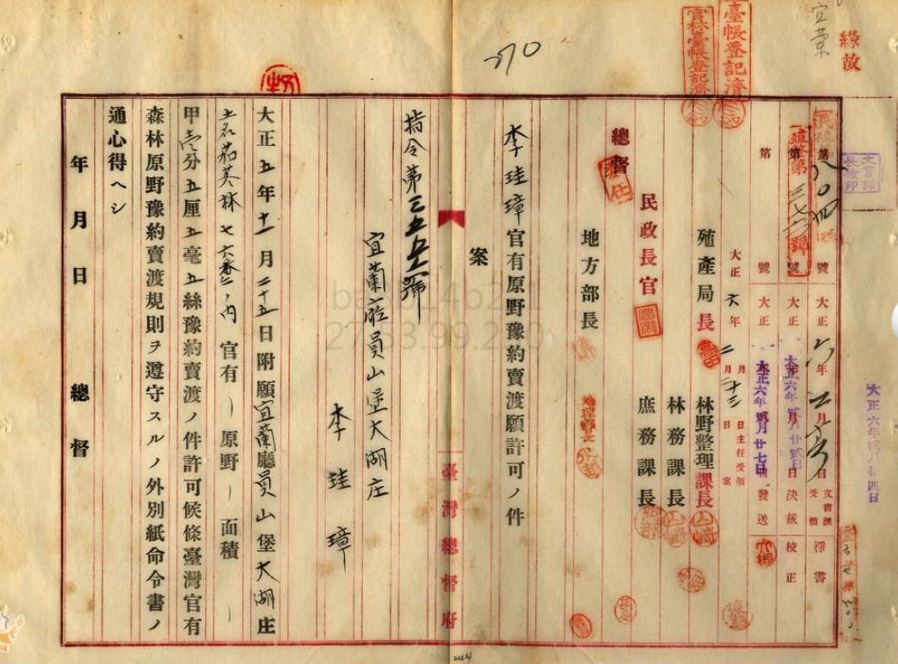 宜蘭
臺帳登記濟
官林臺帳登記濟
270
文書課長檢印
大正六年貳月廿四日
第八〇四號 大正六年二月 日 文書課受領 淨書
第 號 大正 年 月 日 決裁 校正
大正六年貳月廿貳日
第 號 大正 年 月 日 發送
大正六年貳月廿七日
大正六年二月二十二日 主任受領
月 日 案
殖產局長 林野整理課長
林務課長
民政長官 庶務課長
總督
地方部長
李珪璋官有原野豫約賣渡願許可ノ件
案
臺灣總督府
指令第三五五號
宜蘭廳員山堡大湖庄
李珪璋
大正五年十一月二十五日附願宜蘭廳員山堡大湖庄
七六番ノ內官有 原野 面積
甲壹分五厘五毫五絲豫約賣渡ノ件許可候條臺灣官有
森林原野豫約賣渡規則ヲ遵守スルノ外別紙命令書ノ
通心得ヘシ
年 月 日 總督